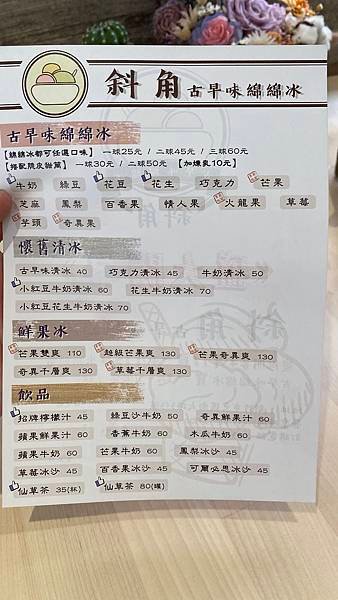 斜角 古早味綿綿冰
古早味綿綿冰
【綿綿冰都可任選口味】 一球25元 / 二球45元 / 三球60元
【搭配脆皮甜筒】 一球30元 / 二球50元 【加煉乳10元】
牛奶 綠豆 花豆 花生 巧克力 芒果
芝麻 鳳梨 百香果 情人果 火龍果 草莓
芋頭 奇異果
懷舊清冰
古早味清冰 40 巧克力清冰 45 牛奶清冰 50
小紅豆牛奶清冰 60 花生牛奶清冰 70
小紅豆花生牛奶清冰 70
鮮果冰
芒果雙爽 110 超級芒果爽 130 芒果奇異爽 130
奇異千層爽 130 草莓千層爽 130
飲品
招牌檸檬汁 45 綠豆沙牛奶 50 奇異鮮果汁 60
蘋果鮮果汁 60 香蕉牛奶 60 木瓜牛奶 60
蘋果牛奶 60 芒果牛奶 60 鳳梨冰沙 45
草莓冰沙 45 百香果冰沙 45 可爾必思冰沙 45
仙草茶 35(杯) 仙草茶 80(瓶)